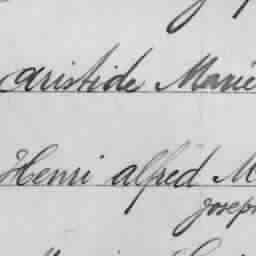 aristide Marie
Henri alfred M
joseph